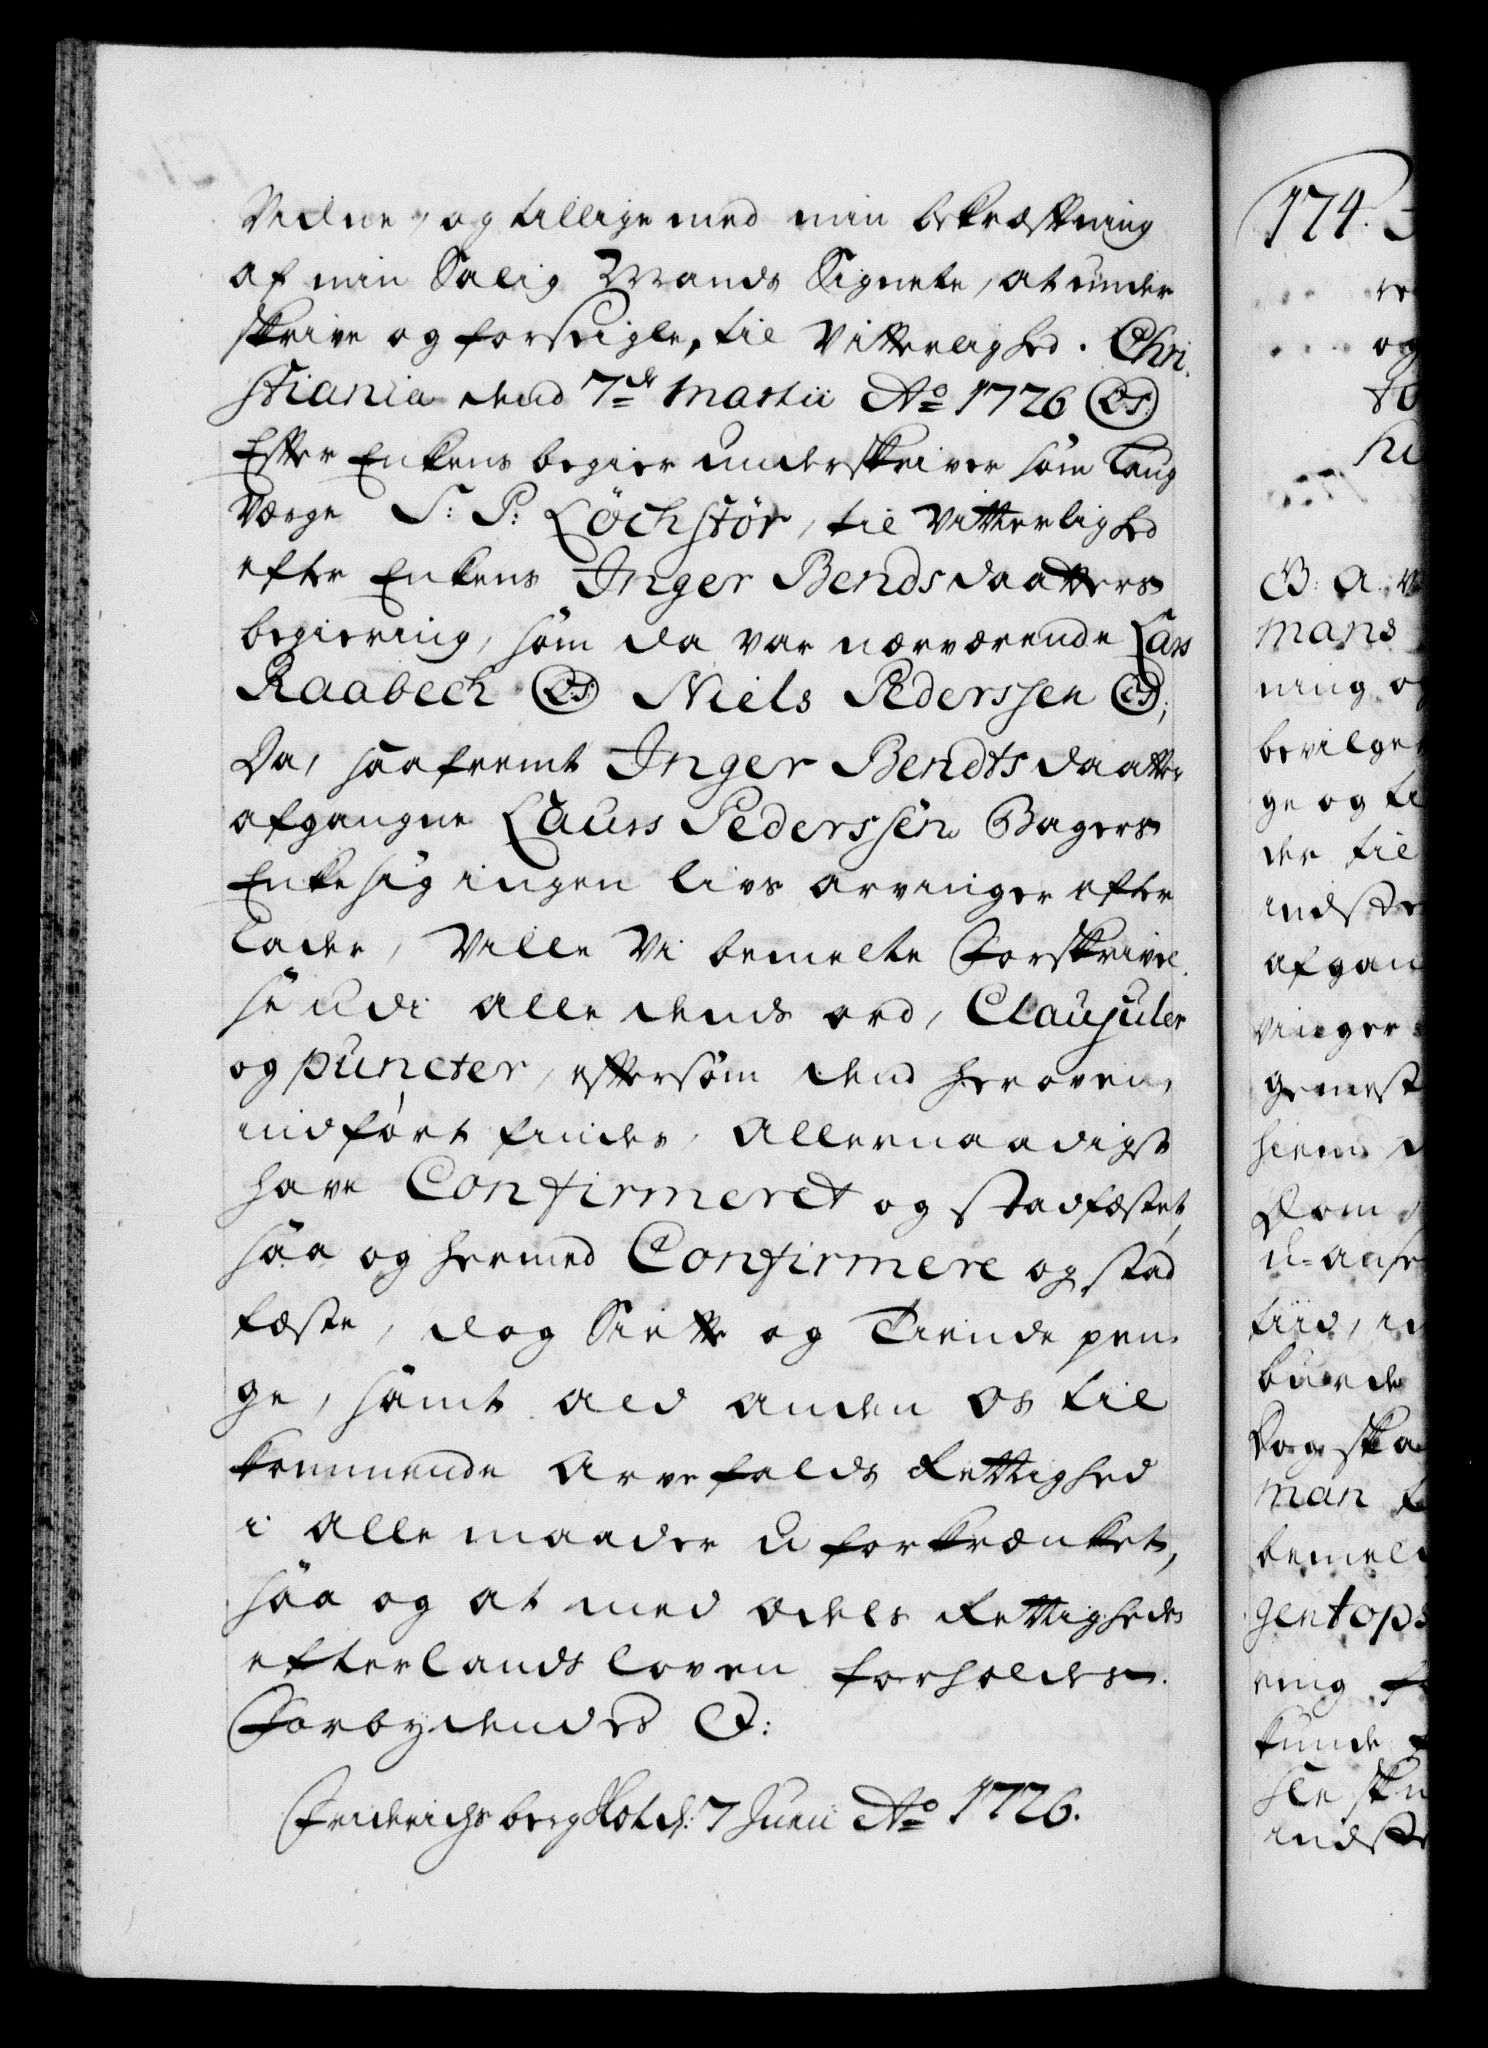 Vidne, og tillige med min bekræftning
af min Salig Mands Signete, at under
skrive og forseigle, til Vitterlighed. Chri-
stiania dend 7de Martii Ao 1726 (L.S.)
Efter Enkens begier underskriver som Laug
Værge S: P: Löchstør, til Vitterlighed
efter Enkens Inger Bendsdaatters
begiering, som da var nærværende Lars
Raabech (L.S.) Niels Pederssen (L.S.);
Da, saafremt Inger Bendtsdaatter
afgangne Laurs Pederssen Bagers
Enke sig ingen livs arvinger efter
lader, Ville Vi bemelte Forskrivel-
se udi alle dends ord, Clausuler
og puncter, eftersom dend heroven,
indført findes, allernaadigst
have Confirmeret og stadfæstet,
saa og hermed Confirmere og stad
fæste, dog Siette og Tiende pen-
ge, samt ald anden Os til
kommende Arvefalds Rettighed
i alle maader uforkrænket,
saa og at med odels Rettigheder
efter lands loven forholdes.
Forbydendes &:
Friderichsberg Slot d: 7 Junii Ao 1726.
174.
og
B: A:
mans
ning
bevilge
ge og
der til
indst
afgan
vinger
gemest
hiem
Dom
u-anse
tiid,
burde
Dog ska
man
bemel
gentops
ring
kunde
indst